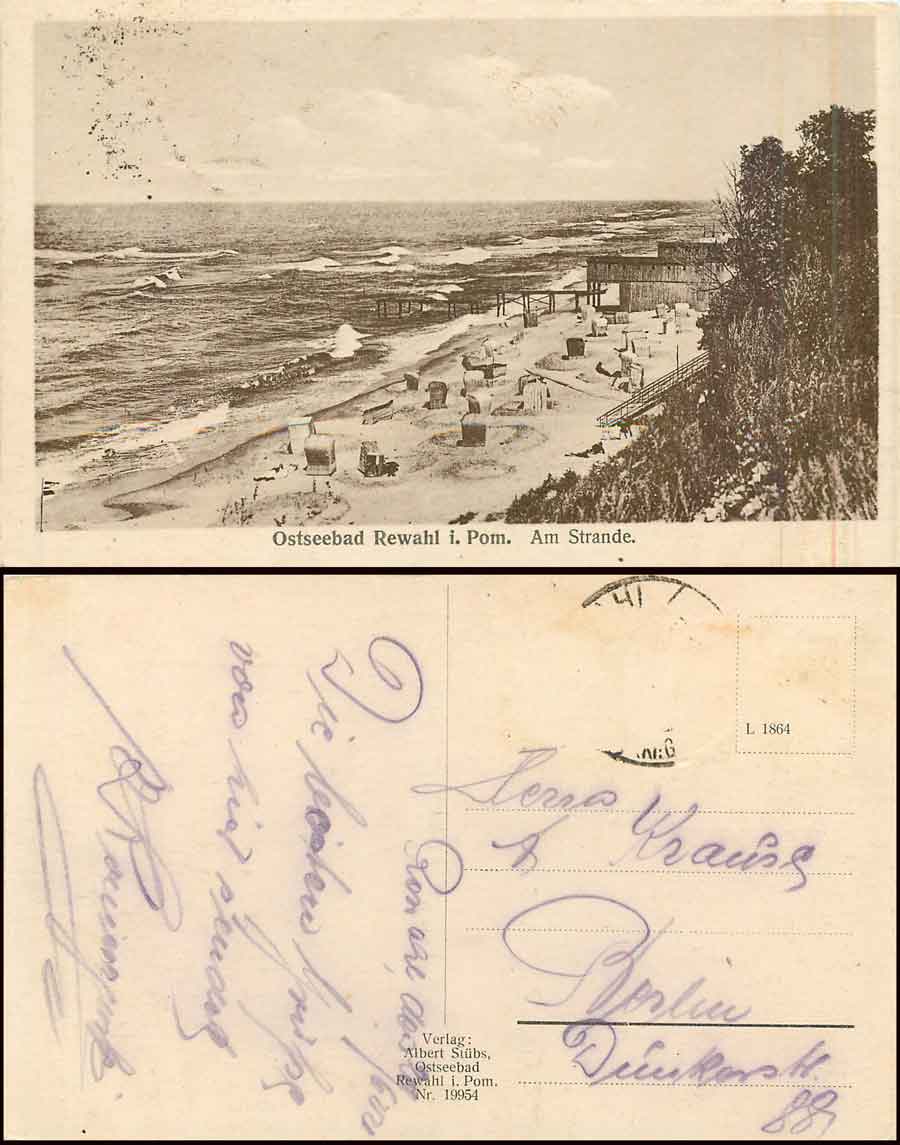 Ostseebad Rewahl i. Pom. Am Strande.
L 1864
Herrn
A. Krause
Berlin
Dunkerstr.
88
Die besten Grüße
von hier sendet
Verlag:
Albert Stübs,
Ostseebad
Rewahl i. Pom.
Nr. 19954